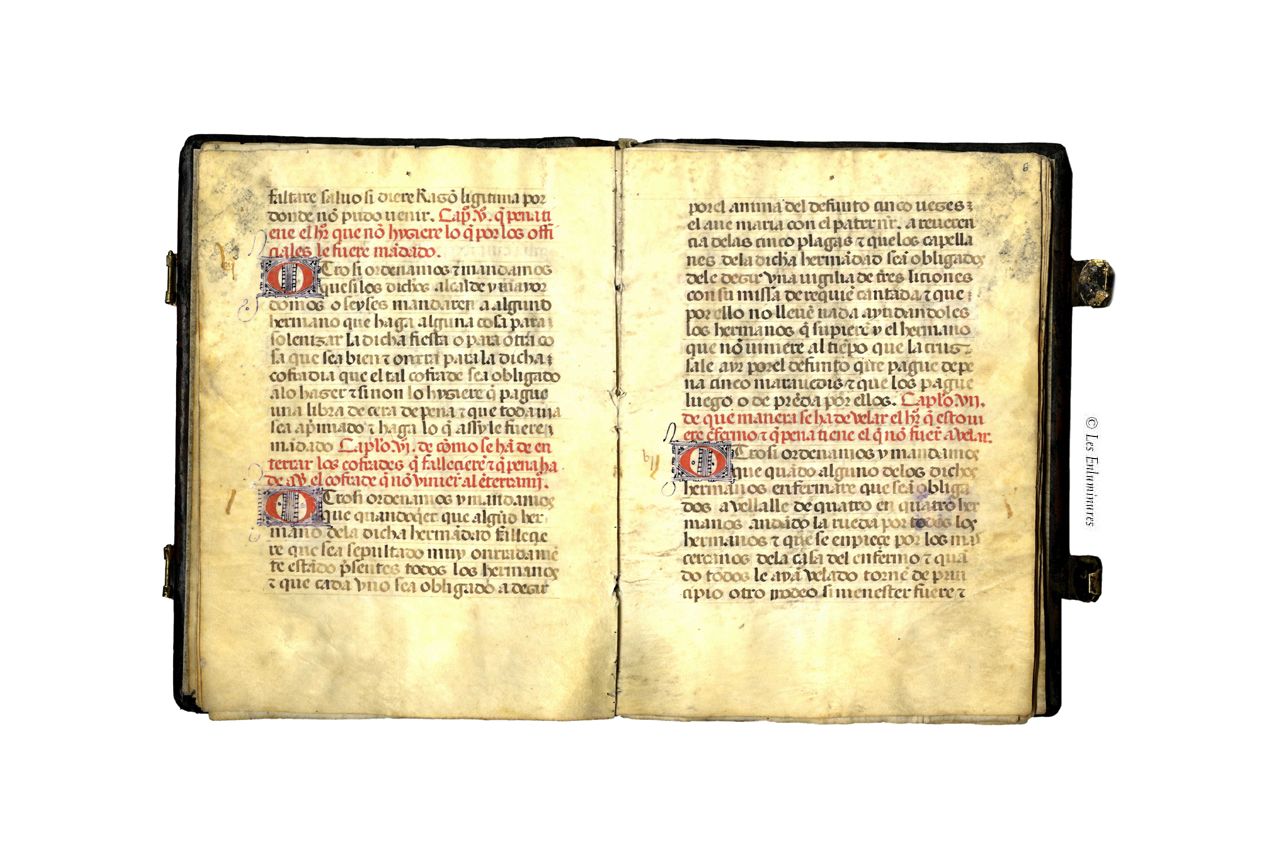 faltare saluo si diere Razõ ligitima por
donde nõ pudo uenir. Capº. v. q̃ pena ti
ene el hrº que nõ hyziere lo q̃ por los offi
ciales le fuere mãdado.
Otrosi ordenamos τ mandamos
que si los dichos alcalde y mayor
domos o seyses mandaren a algund
hermano que haga alguna cosa para
solenizar la dicha fiesta o para otra co
sa que sea bien τ onrra para la dicha
cofradia que el tal cofrade sea obligado
a lo hazer τ si non lo hyziere q̃ pague
una libra de cera de pena τ que toda uia
sea ap̃miado τ haga lo q̃ assy le fuere
mãdado Capłlo vj. de cõmo se hã de en
terrar los cofrades q̃ fallecierẽ τ q̃ pena ha
de el cofrade q̃ nõ vinier al ẽterramiº.
Otrosi ordenamos y mandamos
que quandoq̃er que algũo her
mano dela dicha hermãdad fallecie
re que sea sepultado muy onrradamẽ
te estãdo p̃sentes todos los hermanos
τ que cada vno sea obligado a dezir
6
por el anima del defunto cinco uezes
el aue maria con el pater nr̃. a reueren
cia delas cinco plagas τ que los capella
nes dela dicha hermãdad seã obligados
de le dezir vna vigilia de tres liciones
con su missa de requiẽ cantada τ que
por ello no lleuẽ nada ayudandoles
los hermanos q̃ supierẽ y el hermano
que nõ uiniere al tiẽpo que la cruz
sale a yr por el defunto que pague de pe
na cinco marauedis τ que los pague
luego o de prẽda por ellos. Capłlo vij.
de que manera se ha de velar el hrº q̃ estoui
ere ẽfermo τ q̃ pena tiene el q̃ nõ fuerẽ a velar.
Otrosi ordenamos y mandamos
que quãdo alguno delos dichos
hermanos enfermare que seã obliga
dos a vellalle de quatro en quatro her
manos andãdo la rueda por todos los
hermanos τ que se enpieçe por los mas
cercanos dela casa del enfermo τ quã
do tõdos le ayã velado tornẽ de prin
cipio otro rrodeo si menester fuere τ
© Les Enluminures